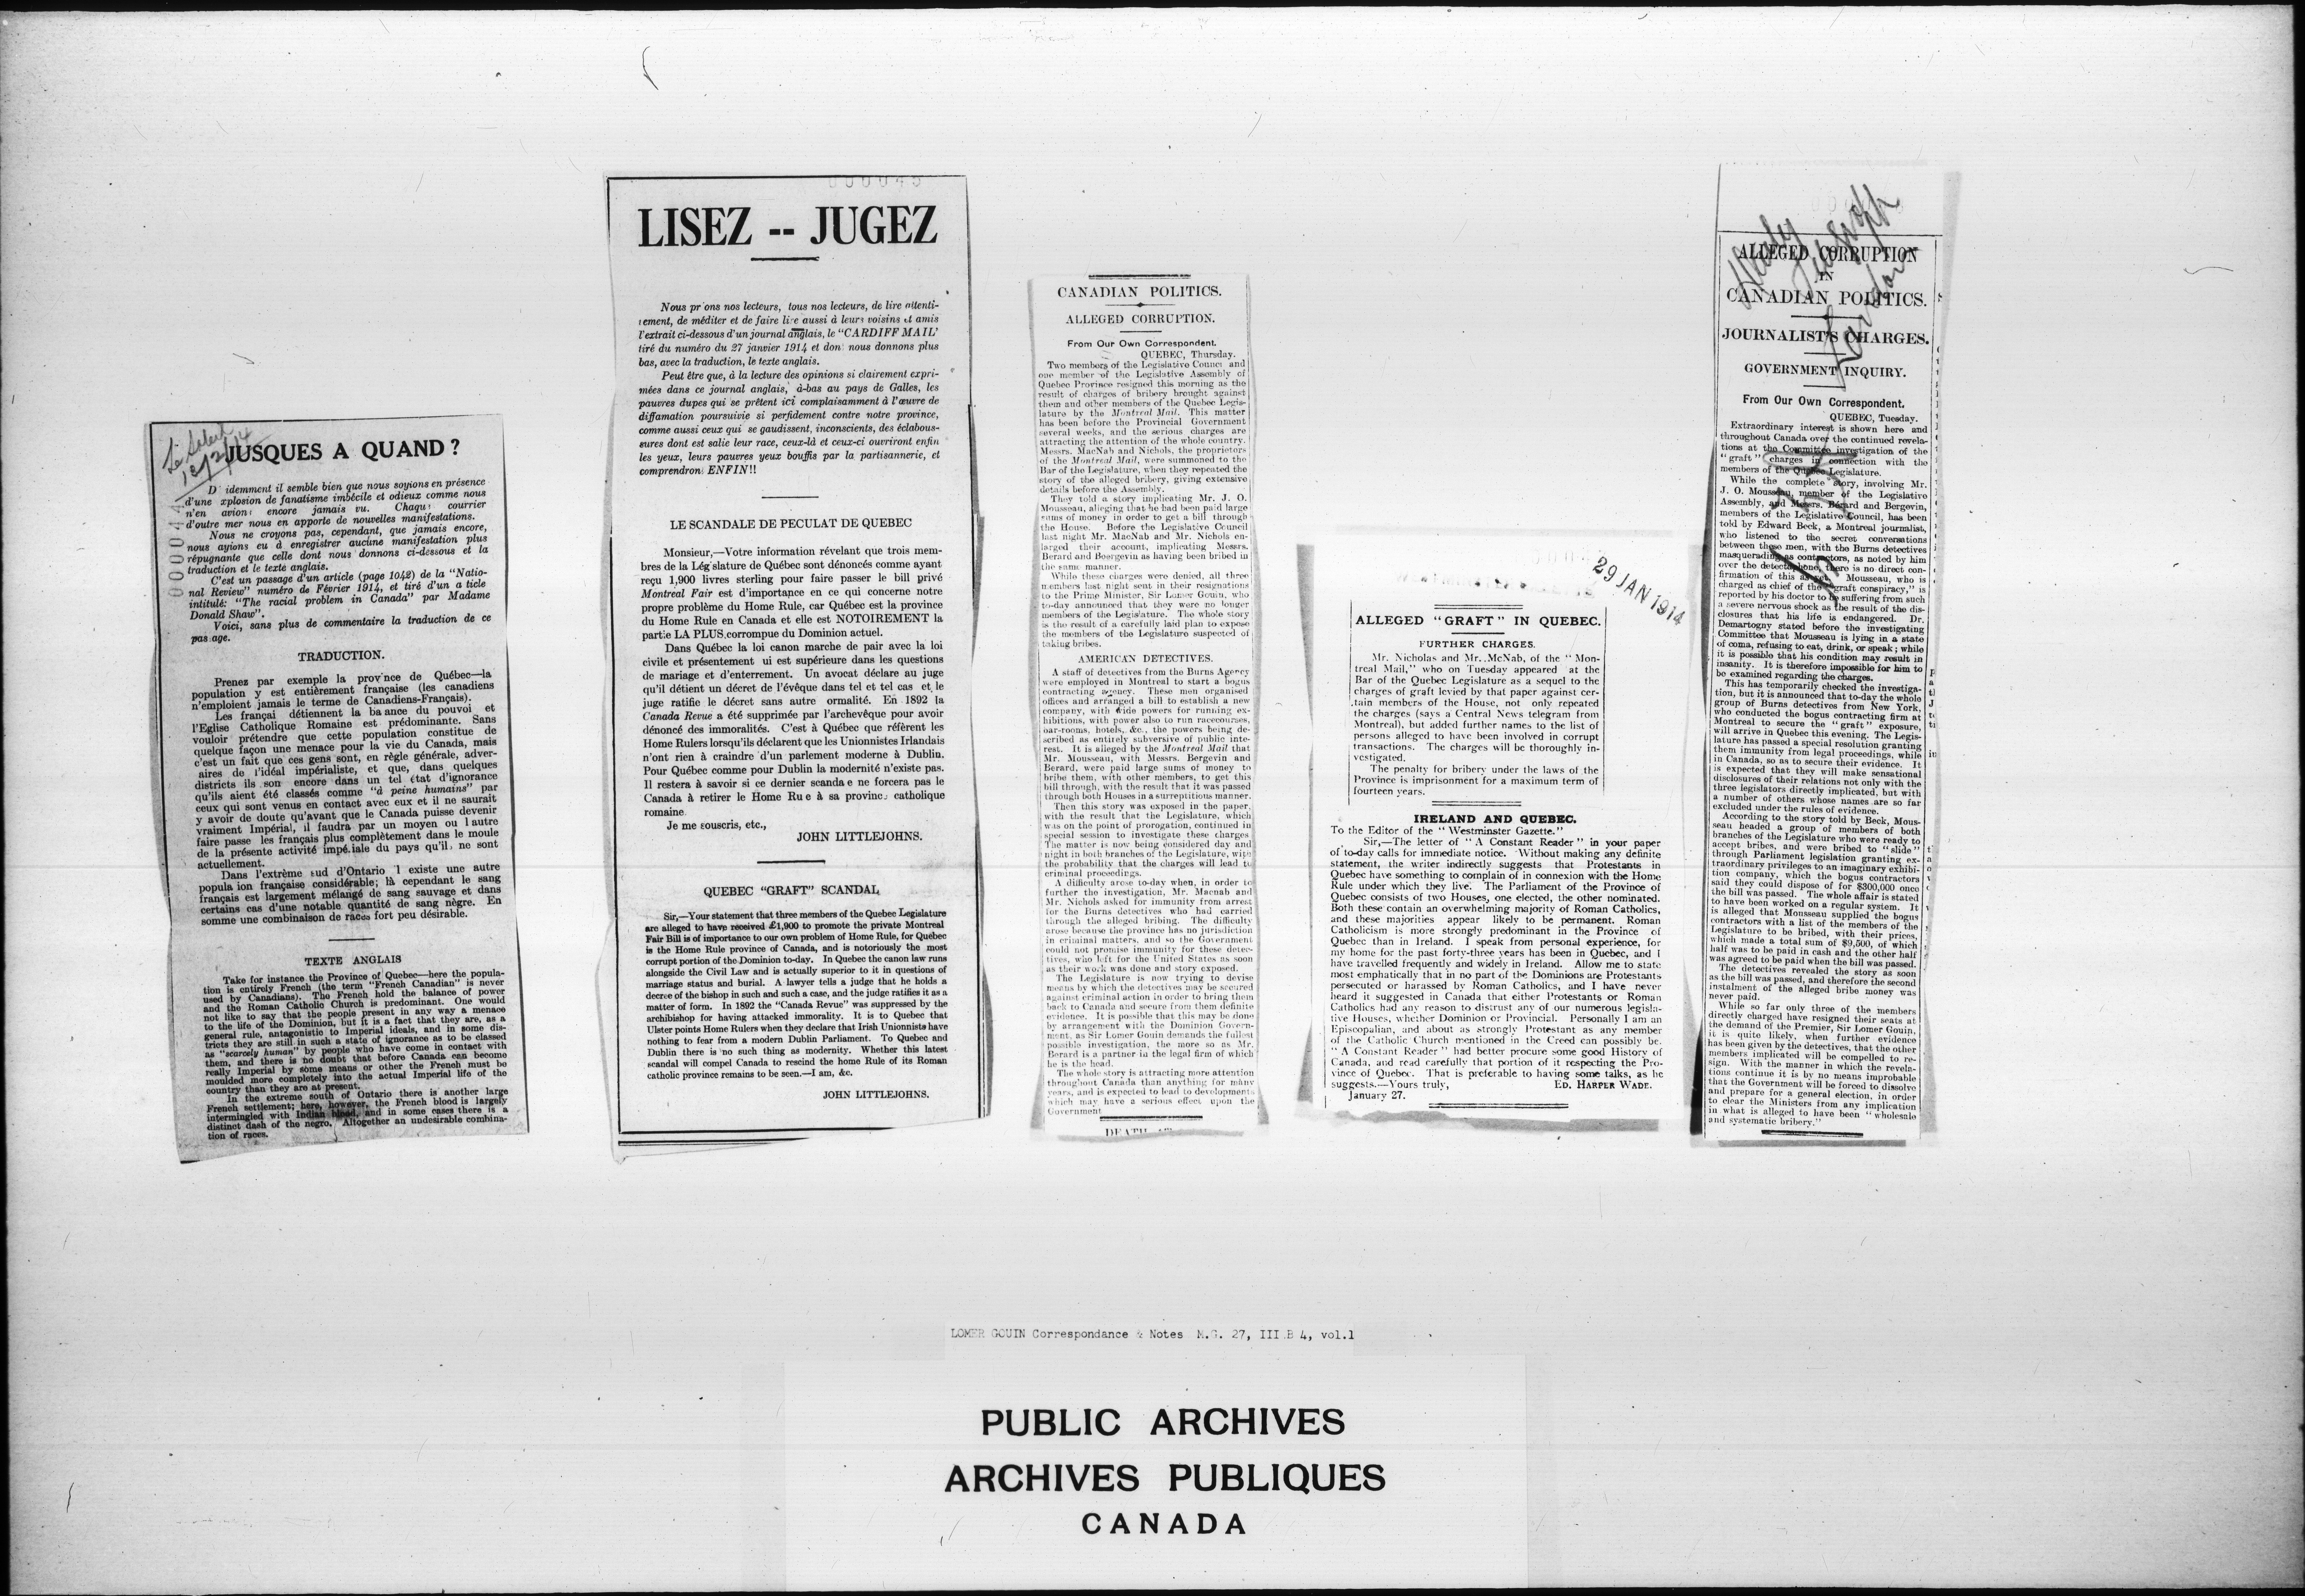 Le Soleil
12/2/14
000044
JUSQUES A QUAND ?
D idemment il semble bien que nous soyions en présence
d'une xplosion de fanatisme imbécile et odieux comme nous
n'en avions encore jamais vu. Chaque courrier
d'outre mer nous en apporte de nouvelles manifestations.
Nous ne croyons pas, cependant, que jamais encore,
nous ayions eu à enregistrer aucune manifestation plus
répugnante que celle dont nous donnons ci-dessous et la
traduction et le texte anglais.
C'est un passage d'un article (page 1042) de la "Natio-
nal Review" numéro de Février 1914, et tiré d'un a ticle
intitulé: "The racial problem in Canada" par Madame
Donald Shaw".
Voici, sans plus de commentaire la traduction de ce
pas age.
TRADUCTION.
Prenez par exemple la prov nce de Québec—la
population y est entièrement française (les canadiens
n'emploient jamais le terme de Canadiens-Français).
Les françai détiennent la ba ance du pouvoi et
l'Eglise Catholique Romaine est prédominante. Sans
vouloir prétendre que cette population constitue de
quelque façon une menace pour la vie du Canada, mais
c'est un fait que ces gens sont, en règle générale, adver-
aires de l'idéal impérialiste, et que, dans quelques
districts ils son encore dans un tel état d'ignorance
qu'ils aient été classés comme "à peine humains" par
ceux qui sont venus en contact avec eux et il ne saurait
y avoir de doute qu'avant que le Canada puisse devenir
vraiment Impérial, il faudra par un moyen ou l autre
faire passe les français plus complètement dans le moule
de la présente activité impé.iale du pays qu'il ne sont
actuellement.
Dans l'extrème sud d'Ontario l existe une autre
popula ion française considérable; là cependant le sang
français est largement mélangé de sang sauvage et dans
certains cas d'une notable quantité de sang nègre. En
somme une combinaison de races fort peu désirable.
TEXTE ANGLAIS
Take for instance the Province of Quebec—here the popula-
tion is entirely French (the term "French Canadian" is never
used by Canadians). The French hold the balance of power
and the Roman Catholic Church is predominant. One would
not like to say that the people present in any way a menace
to the life of the Dominion, but it is a fact that they are, as a
general rule, antagonistic to Imperial ideals, and in some dis-
tricts they are still in such a state of ignorance as to be classed
as "scarcely human" by people who have come in contact with
them, and there is no doubt that before Canada can become
really Imperial by some means or other the French must be
moulded more completely into the actual Imperial life of the
country than they are at present.
In the extreme south of Ontario there is another large
French settlement; here, however, the French blood is largely
intermingled with Indian blood, and in some cases there is a
distinct dash of the negro. Altogether an undesirable combina-
tion of races.
000045
LISEZ -- JUGEZ
Nous pr ons nos lecteurs, tous nos lecteurs, de lire attenti-
vement, de méditer et de faire lire aussi à leurs voisins et amis
l'extrait ci-dessous d'un journal anglais, le "CARDIFF MAIL"
tiré du numéro du 27 janvier 1914 et don nous donnons plus
bas, avec la traduction, le texte anglais.
Peut être que, à la lecture des opinions si clairement expri-
mées dans ce journal anglais, à-bas au pays de Galles, les
pauvres dupes qui se prêtent ici complaisamment à l'œuvre de
diffamation poursuivie si perfidement contre notre province,
comme aussi ceux qui se gaudissent, inconscients, des éclabous-
sures dont est salie leur race, ceux-là et ceux-ci ouvriront enfin
les yeux, leurs pauvres yeux bouffis par la partisannerie, et
comprendron: ENFIN!!
LE SCANDALE DE PECULAT DE QUEBEC
Monsieur,—Votre information révelant que trois mem-
bres de la Lég slature de Québec sont dénoncés comme ayant
reçu 1,900 livres sterling pour faire passer le bill privé
Montreal Fair est d'importance en ce qui concerne notre
propre problème du Home Rule, car Québec est la province
du Home Rule en Canada et elle est NOTOIREMENT la
partie LA PLUS corrompue du Dominion actuel.
Dans Québec la loi canon marche de pair avec la loi
civile et présentement ui est supérieure dans les questions
de mariage et d'enterrement. Un avocat déclare au juge
qu'il détient un décret de l'évêque dans tel et tel cas et le
juge ratifie le décret sans autre ormalité. En 1892 la
Canada Revue a été supprimée par l'archevêque pour avoir
dénoncé des immoralités. C'est à Québec que réfèrent les
Home Rulers lorsqu'ils déclarent que les Unionnistes Irlandais
n'ont rien à craindre d'un parlement moderne à Dublin.
Pour Québec comme pour Dublin la modernité n'existe pas.
Il restera à savoir si ce dernier scanda e ne forcera pas le
Canada à retirer le Home Ru e à sa province catholique
romaine
Je me souscris, etc.,
JOHN LITTLEJOHNS.
QUEBEC "GRAFT" SCANDAL
Sir,—Your statement that three members of the Quebec Legislature
are alleged to have received £1,900 to promote the private Montreal
Fair Bill is of importance to our own problem of Home Rule, for Quebec
is the Home Rule province of Canada, and is notoriously the most
corrupt portion of the Dominion to-day. In Quebec the canon law runs
alongside the Civil Law and is actually superior to it in questions of
marriage status and burial. A lawyer tells a judge that he holds a
decree of the bishop in such and such a case, and the judge ratifies it as a
matter of form. In 1892 the "Canada Revue" was suppressed by the
archbishop for having attacked immorality. It is to Quebec that
Ulster points Home Rulers when they declare that Irish Unionnists have
nothing to fear from a modern Dublin Parliament. To Quebec and
Dublin there is no such thing as modernity. Whether this latest
scandal will compel Canada to rescind the home Rule of its Roman
catholic province remains to be seen.—I am, &c.
JOHN LITTLEJOHNS.
CANADIAN POLITICS.
ALLEGED CORRUPTION.
From Our Own Correspondent.
QUEBEC, Thursday.
Two members of the Legislative Council and
one member of the Legislative Assembly of
Quebec Province resigned this morning as the
result of charges of bribery brought against
them and other members of the Quebec Legis-
lature by the Montreal Mail. This matter
has been before the Provincial Government
several weeks, and the serious charges are
attracting the attention of the whole country.
Messrs. MacNab and Nichols, the proprietors
of the Montreal Mail, were summoned to the
Bar of the Legislature, when they repeated the
story of the alleged bribery, giving extensive
details before the Assembly.
They told a story implicating Mr. J. O.
Mousseau, alleging that he had been paid large
sums of money in order to get a bill through
the House. Before the Legislative Council
last night Mr. MacNab and Mr. Nichols en-
larged their account, implicating Messrs.
Berard and Beorgevin as having been bribed in
the same manner.
While these charges were denied, all three
members last night sent in their resignations
to the Prime Minister, Sir Lomer Gouin, who
to-day announced that they were no longer
members of the Legislature. The whole story
is the result of a carefully laid plan to expose
the members of the Legislature suspected of
taking bribes.
AMERICAN DETECTIVES.
A staff of detectives from the Burns Agency
were employed in Montreal to start a bogus
contracting agency. These men organised
offices and arranged a bill to establish a new
company, with wide powers for running ex-
hibitions, with power also to run racecourses,
bar-rooms, hotels, &c., the powers being de-
scribed as entirely subversive of public inte-
rest. It is alleged by the Montreal Mail that
Mr. Mousseau, with Messrs. Bergevin and
Berard, were paid large sums of money to
bribe them, with other members, to get this
bill through, with the result that it was passed
through both Houses in a surreptitious manner.
Then this story was exposed in the paper,
with the result that the Legislature, which
was on the point of prorogation, continued in
special session to investigate these charges
The matter is now being considered day and
night in both branches of the Legislature, with
the probability that the charges will lead to
criminal proceedings.
A difficulty arose to-day when, in order to
further the investigation, Mr. Macnab and
Mr. Nichols asked for immunity from arrest
for the Burns detectives who had carried
through the alleged bribing. The difficulty
arose because the province has no jurisdiction
in criminal matters, and so the Government
could not promise immunity for these detec-
tives, who left for the United States as soon
as their work was done and story exposed.
The Legislature is now trying to devise
means by which the detectives may be secured
against criminal action in order to bring them
back to Canada and secure from them definite
evidence. It is possible that this may be done
by arrangement with the Dominion Govern-
ment, as Sir Lomer Gouin demands the fullest
possible investigation, the more so as Mr.
Berard is a partner in the legal firm of which
he is the head.
The whole story is attracting more attention
throughout Canada than anything for many
years, and is expected to lead to developments
which may have a serious effect upon the
Government
29 JAN 1914
ALLEGED "GRAFT" IN QUEBEC.
FURTHER CHARGES.
Mr. Nicholas and Mr. McNab, of the "Mon-
treal Mail," who on Tuesday appeared at the
Bar of the Quebec Legislature as a sequel to the
charges of graft levied by that paper against cer-
tain members of the House, not only repeated
the charges (says a Central News telegram from
Montreal), but added further names to the list of
persons alleged to have been involved in corrupt
transactions. The charges will be thoroughly in-
vestigated.
The penalty for bribery under the laws of the
Province is imprisonment for a maximum term of
fourteen years.
IRELAND AND QUEBEC.
To the Editor of the "Westminster Gazette."
Sir,—The letter of "A Constant Reader" in your paper
of to-day calls for immediate notice. Without making any definite
statement, the writer indirectly suggests that Protestants in
Quebec have something to complain of in connexion with the Home
Rule under which they live. The Parliament of the Province of
Quebec consists of two Houses, one elected, the other nominated.
Both these contain an overwhelming majority of Roman Catholics,
and these majorities appear likely to be permanent. Roman
Catholicism is more strongly predominant in the Province of
Quebec than in Ireland. I speak from personal experience, for
my home for the past forty-three years has been in Quebec, and I
have travelled frequently and widely in Ireland. Allow me to state
most emphatically that in no part of the Dominions are Protestants
persecuted or harassed by Roman Catholics, and I have never
heard it suggested in Canada that either Protestants or Roman
Catholics had any reason to distrust any of our numerous legisla-
tive Houses, whether Dominion or Provincial. Personally I am an
Episcopalian, and about as strongly Protestant as any member
of the Catholic Church mentioned in the Creed can possibly be.
"A Constant Reader" had better procure some good History of
Canada, and read carefully that portion of it respecting the Pro-
vince of Quebec. That is preferable to having some talks, as he
suggests.—Yours truly, ED. HARPER WADE.
January 27.
London
ALLEGED CORRUPTION
IN
CANADIAN POLITICS.
JOURNALIST'S CHARGES.
GOVERNMENT INQUIRY.
From Our Own Correspondent.
QUEBEC, Tuesday.
Extraordinary interest is shown here and
throughout Canada over the continued revela-
tions at the Committee investigation of the
"graft" charges in connection with the
members of the Quebec Legislature.
While the complete story, involving Mr.
J. O. Mousseau, member of the Legislative
Assembly, and Messrs. Bérard and Bergevin,
members of the Legislative Council, has been
told by Edward Beck, a Montreal journalist,
who listened to the secret conversations
between these men, with the Burns detectives
masquerading as contractors, as noted by him
over the detectaphone, there is no direct con-
firmation of this as yet. Mousseau, who is
charged as chief of the "graft conspiracy," is
reported by his doctor to be suffering from such
a severe nervous shock as the result of the dis-
closures that his life is endangered. Dr.
Demartogny stated before the investigating
Committee that Mousseau is lying in a state
of coma, refusing to eat, drink, or speak; while
it is possible that his condition may result in
insanity. It is therefore impossible for him to
be examined regarding the charges.
This has temporarily checked the investiga-
tion, but it is announced that to-day the whole
group of Burns detectives from New York,
who conducted the bogus contracting firm at
Montreal to secure the "graft" exposure,
will arrive in Quebec this evening. The Legis-
lature has passed a special resolution granting
them immunity from legal proceedings, while
in Canada, so as to secure their evidence. It
is expected that they will make sensational
disclosures of their relations not only with the
three legislators directly implicated, but with
a number of others whose names are so far
excluded under the rules of evidence.
According to the story told by Beck, Mous-
seau headed a group of members of both
branches of the Legislature who were ready to
accept bribes, and were bribed to "slide"
through Parliament legislation granting ex-
traordinary privileges to an imaginary exhibi-
tion company, which the bogus contractors
said they could dispose of for $300,000 once
the bill was passed. The whole affair is stated
to have been worked on a regular system. It
is alleged that Mousseau supplied the bogus
contractors with a list of the members of the
Legislature to be bribed, with their prices,
which made a total sum of $9,500, of which
half was to be paid in cash and the other half
was agreed to be paid when the bill was passed.
The detectives revealed the story as soon
as the bill was passed, and therefore the second
instalment of the alleged bribe money was
never paid.
While so far only three of the members
directly charged have resigned their seats at
the demand of the Premier, Sir Lomer Gouin,
it is quite likely, when further evidence
has been given by the detectives, that the other
members implicated will be compelled to re-
sign. With the manner in which the revela-
tions continue it is by no means improbable
that the Government will be forced to dissolve
and prepare for a general election, in order
to clear the Ministers from any implication
in what is alleged to have been "wholesale
and systematic bribery."
LOMER GOUIN Correspondance & Notes M.G. 27, III B 4, vol.1
PUBLIC ARCHIVES
ARCHIVES PUBLIQUES
CANADA